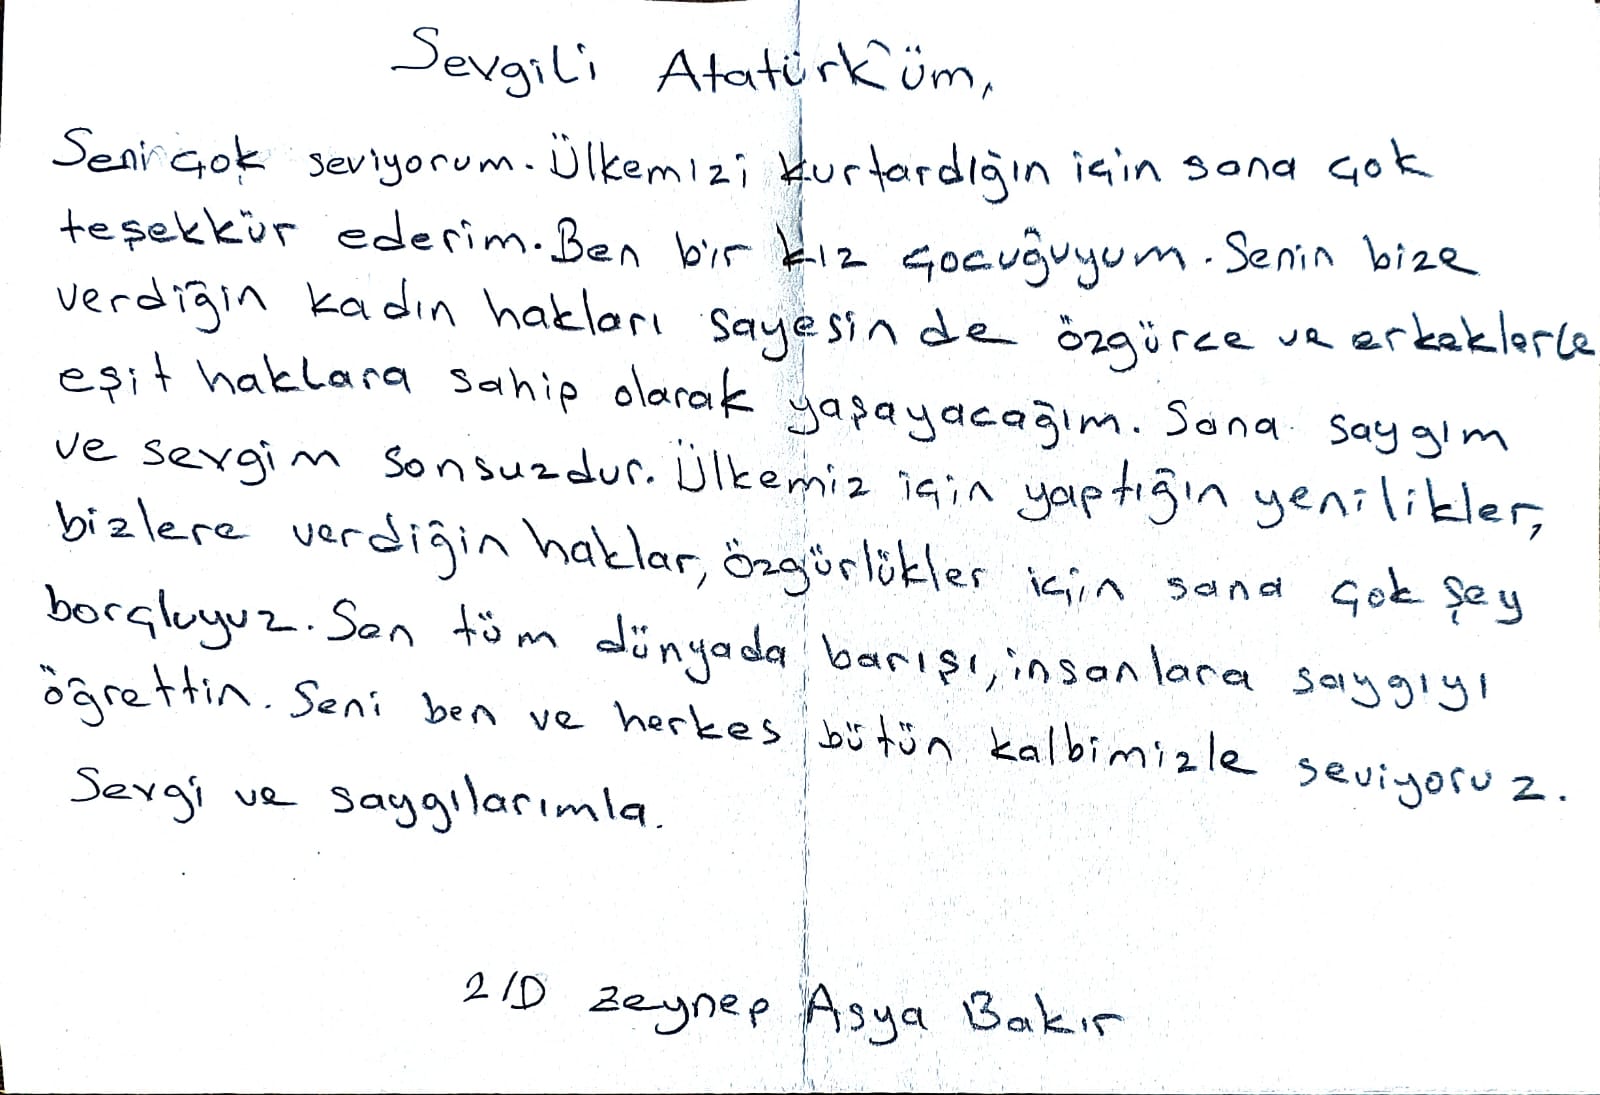 Sevgili Atatürk'üm,
Seni çok seviyorum. Ülkemizi kurtardığın için sana çok
teşekkür ederim. Ben bir kız çocuğuyum. Senin bize
verdiğin kadın hakları sayesin de özgürce ve erkeklerle
eşit haklara sahip olarak yaşayacağım. Sana saygım
ve sevgim sonsuzdur. Ülkemiz için yaptığın yenilikler,
bizlere verdiğin haklar, özgürlükler için sana çok şey
borçluyuz. Sen tüm dünyada barışı, insanlara saygıyı
öğrettin. Seni ben ve herkes bütün kalbimizle seviyoruz.
Sevgi ve saygılarımla.
2/D Zeynep Asya Bakır